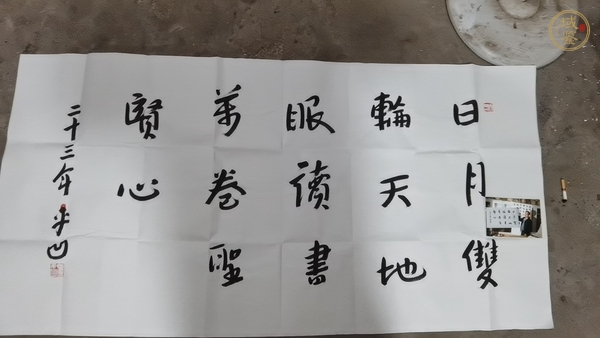 日月雙
輪天地
眼讀書
萬卷聖
賢心
二十三年平凹